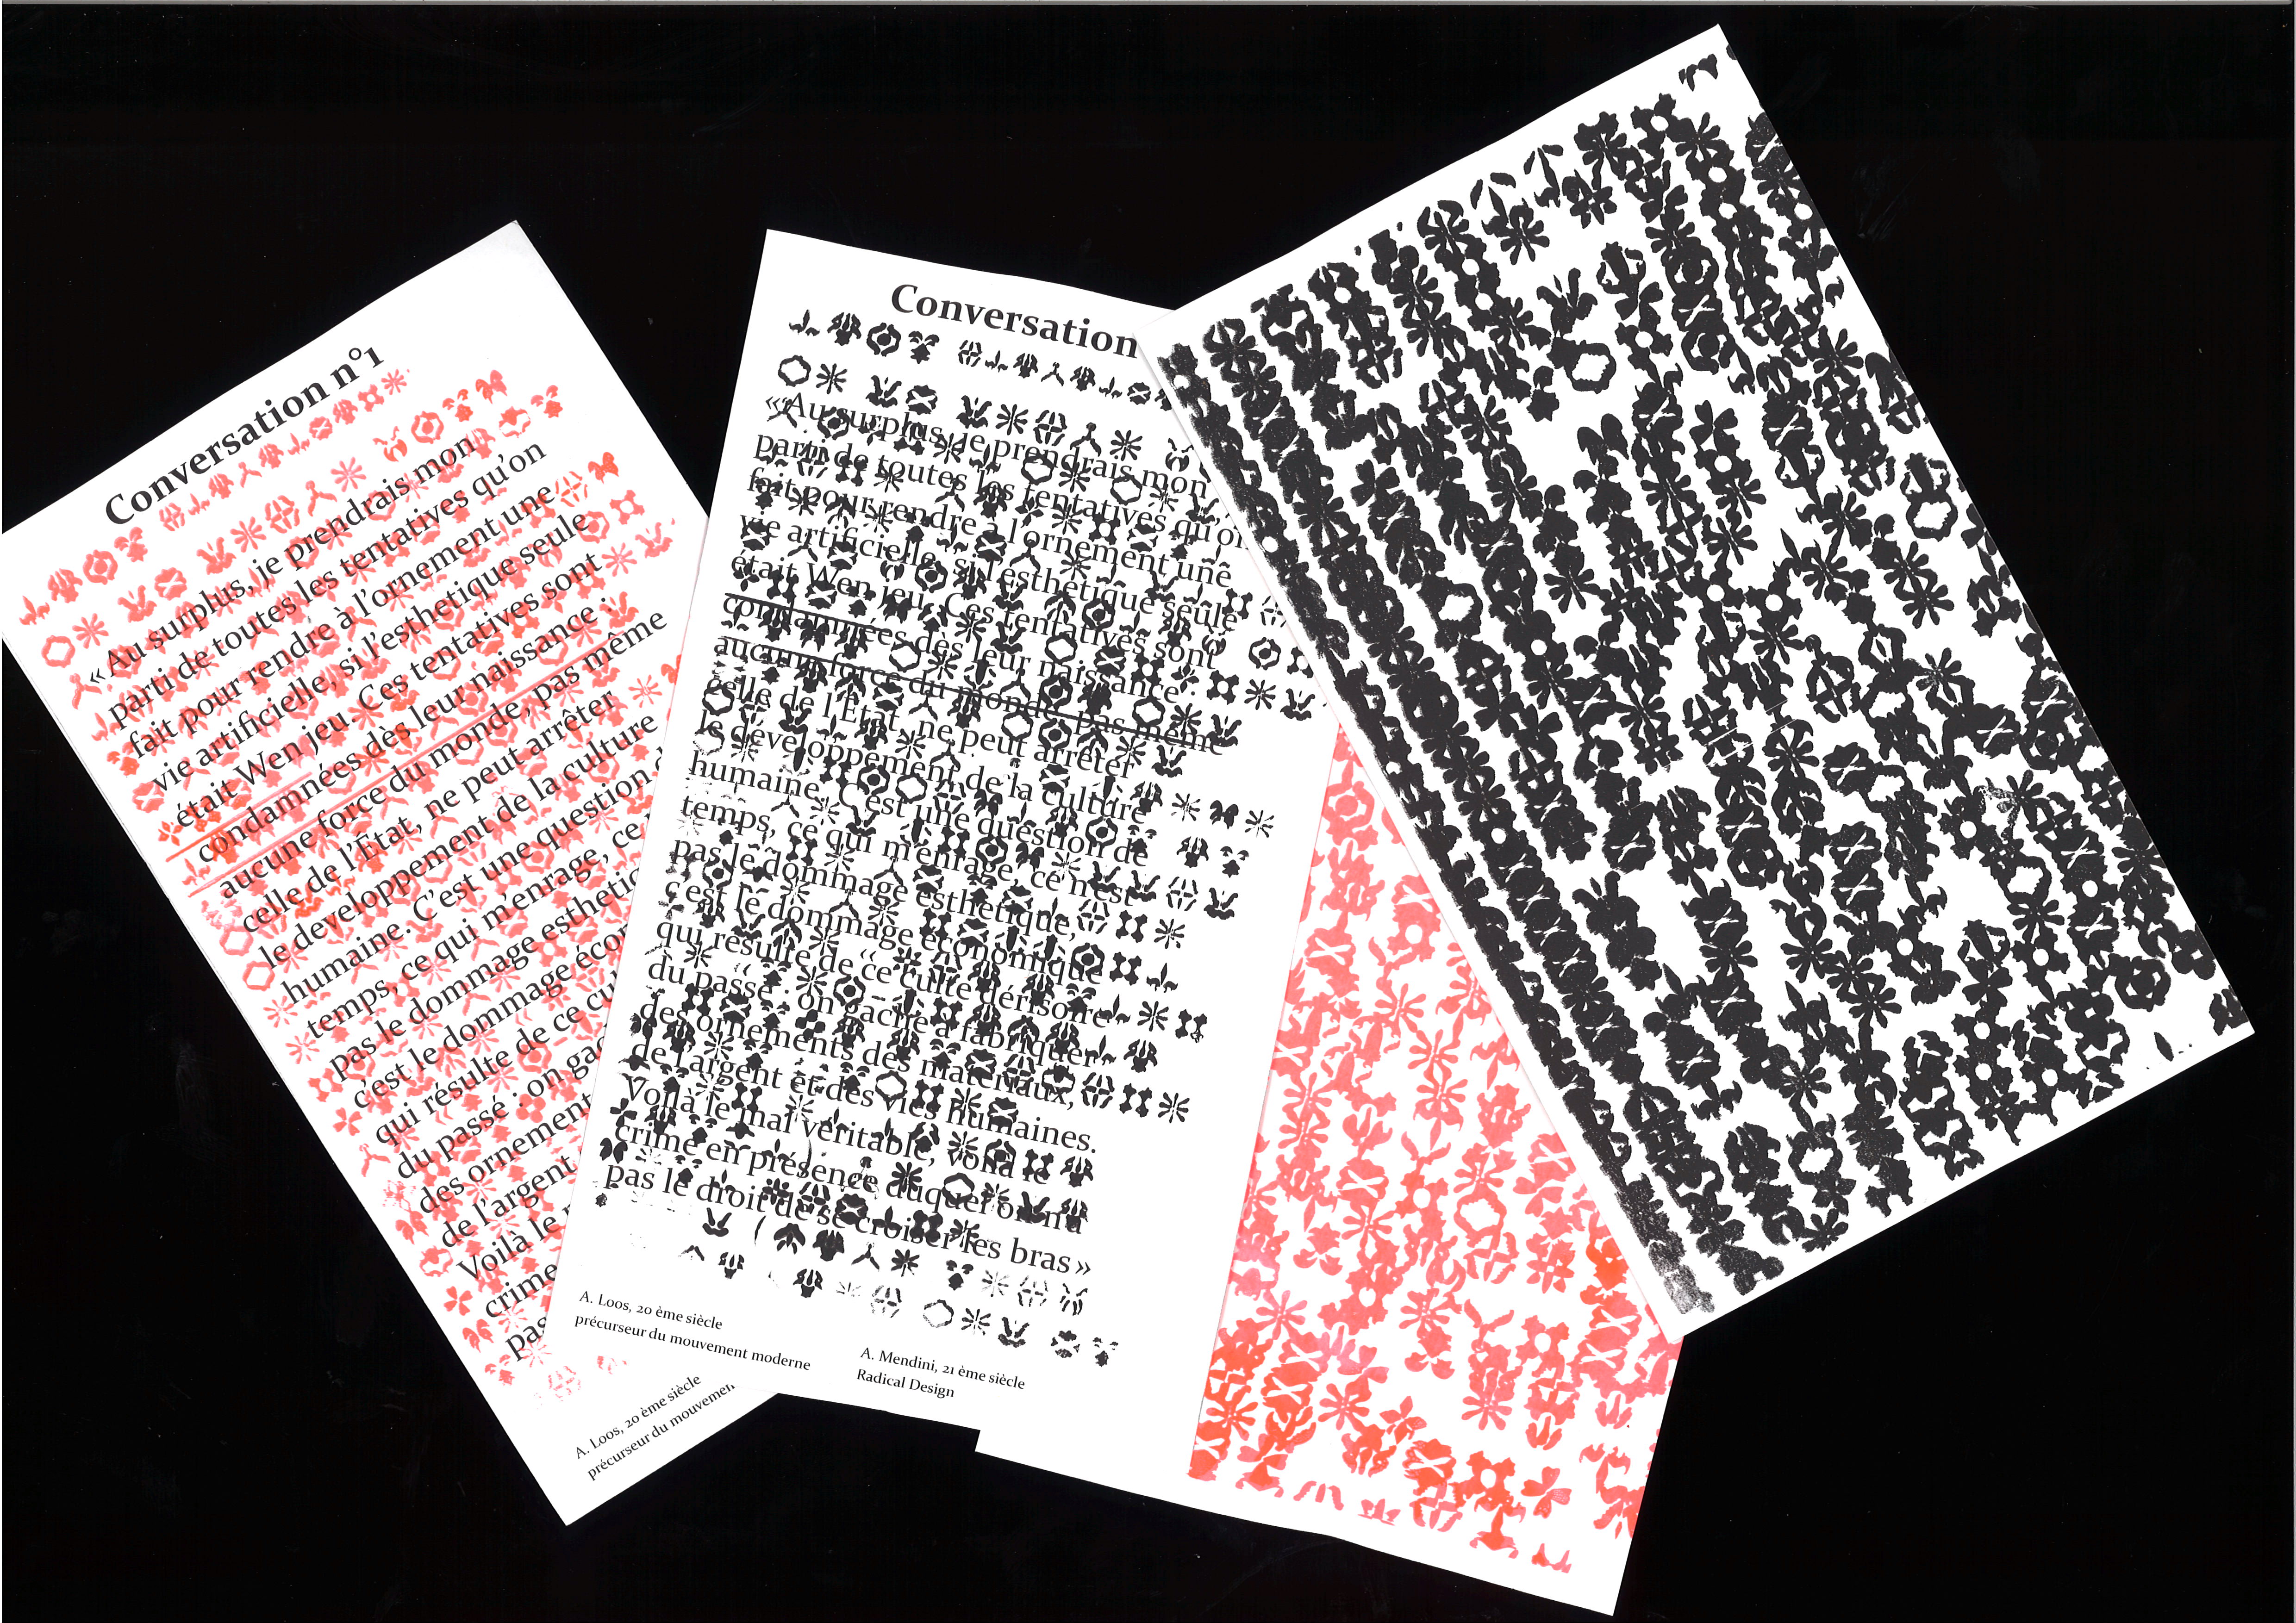 Conversation n°1
« Au surplus, je prendrais mon
parti de toutes les tentatives qu'on
fait pour rendre à l'ornement une
vie artificielle, si l'esthetique seule
était Wen jeu. Ces tentatives sont
condamnées dès leur naissance :
aucune force du monde, pas même
celle de l'État, ne peut arrêter
le developpement de la culture
humaine. C'est une question
temps, ce qui m'enrage, ce
pas le dommage
c'est le dommage
qui résulte de ce
du passé : on
des ornement
de l'argent
Voilà le
crime
pas
A. Loos, 20 ème siècle
précurseur du mouvemen
Conversation
«Au surplus, je prendrais mon
parti de toutes les tentatives qu'on
fait pour rendre à l'ornement une
vie artificielle, si l'esthetique seule
était Wen jeu. Ces tentatives sont
condamnées dès leur naissance :
aucune force du monde, pas même
celle de l'État, ne peut arrêter
le developpement de la culture
humaine. C'est une question de
temps, ce qui m'enrage, ce n'est
pas le dommage esthetique,
c'est le dommage économique
qui résulte de ce culte dérisoire
du passé : on gache a fabriquer
des ornements des materiaux,
de l'argent et des vies humaines.
Voilà le mal véritable, voilà le
crime en présence duquel on n'a
pas le droit de se croiser les bras»
A. Loos, 20 ème siècle
précurseur du mouvement moderne
A. Mendini, 21 ème siècle
Radical Design